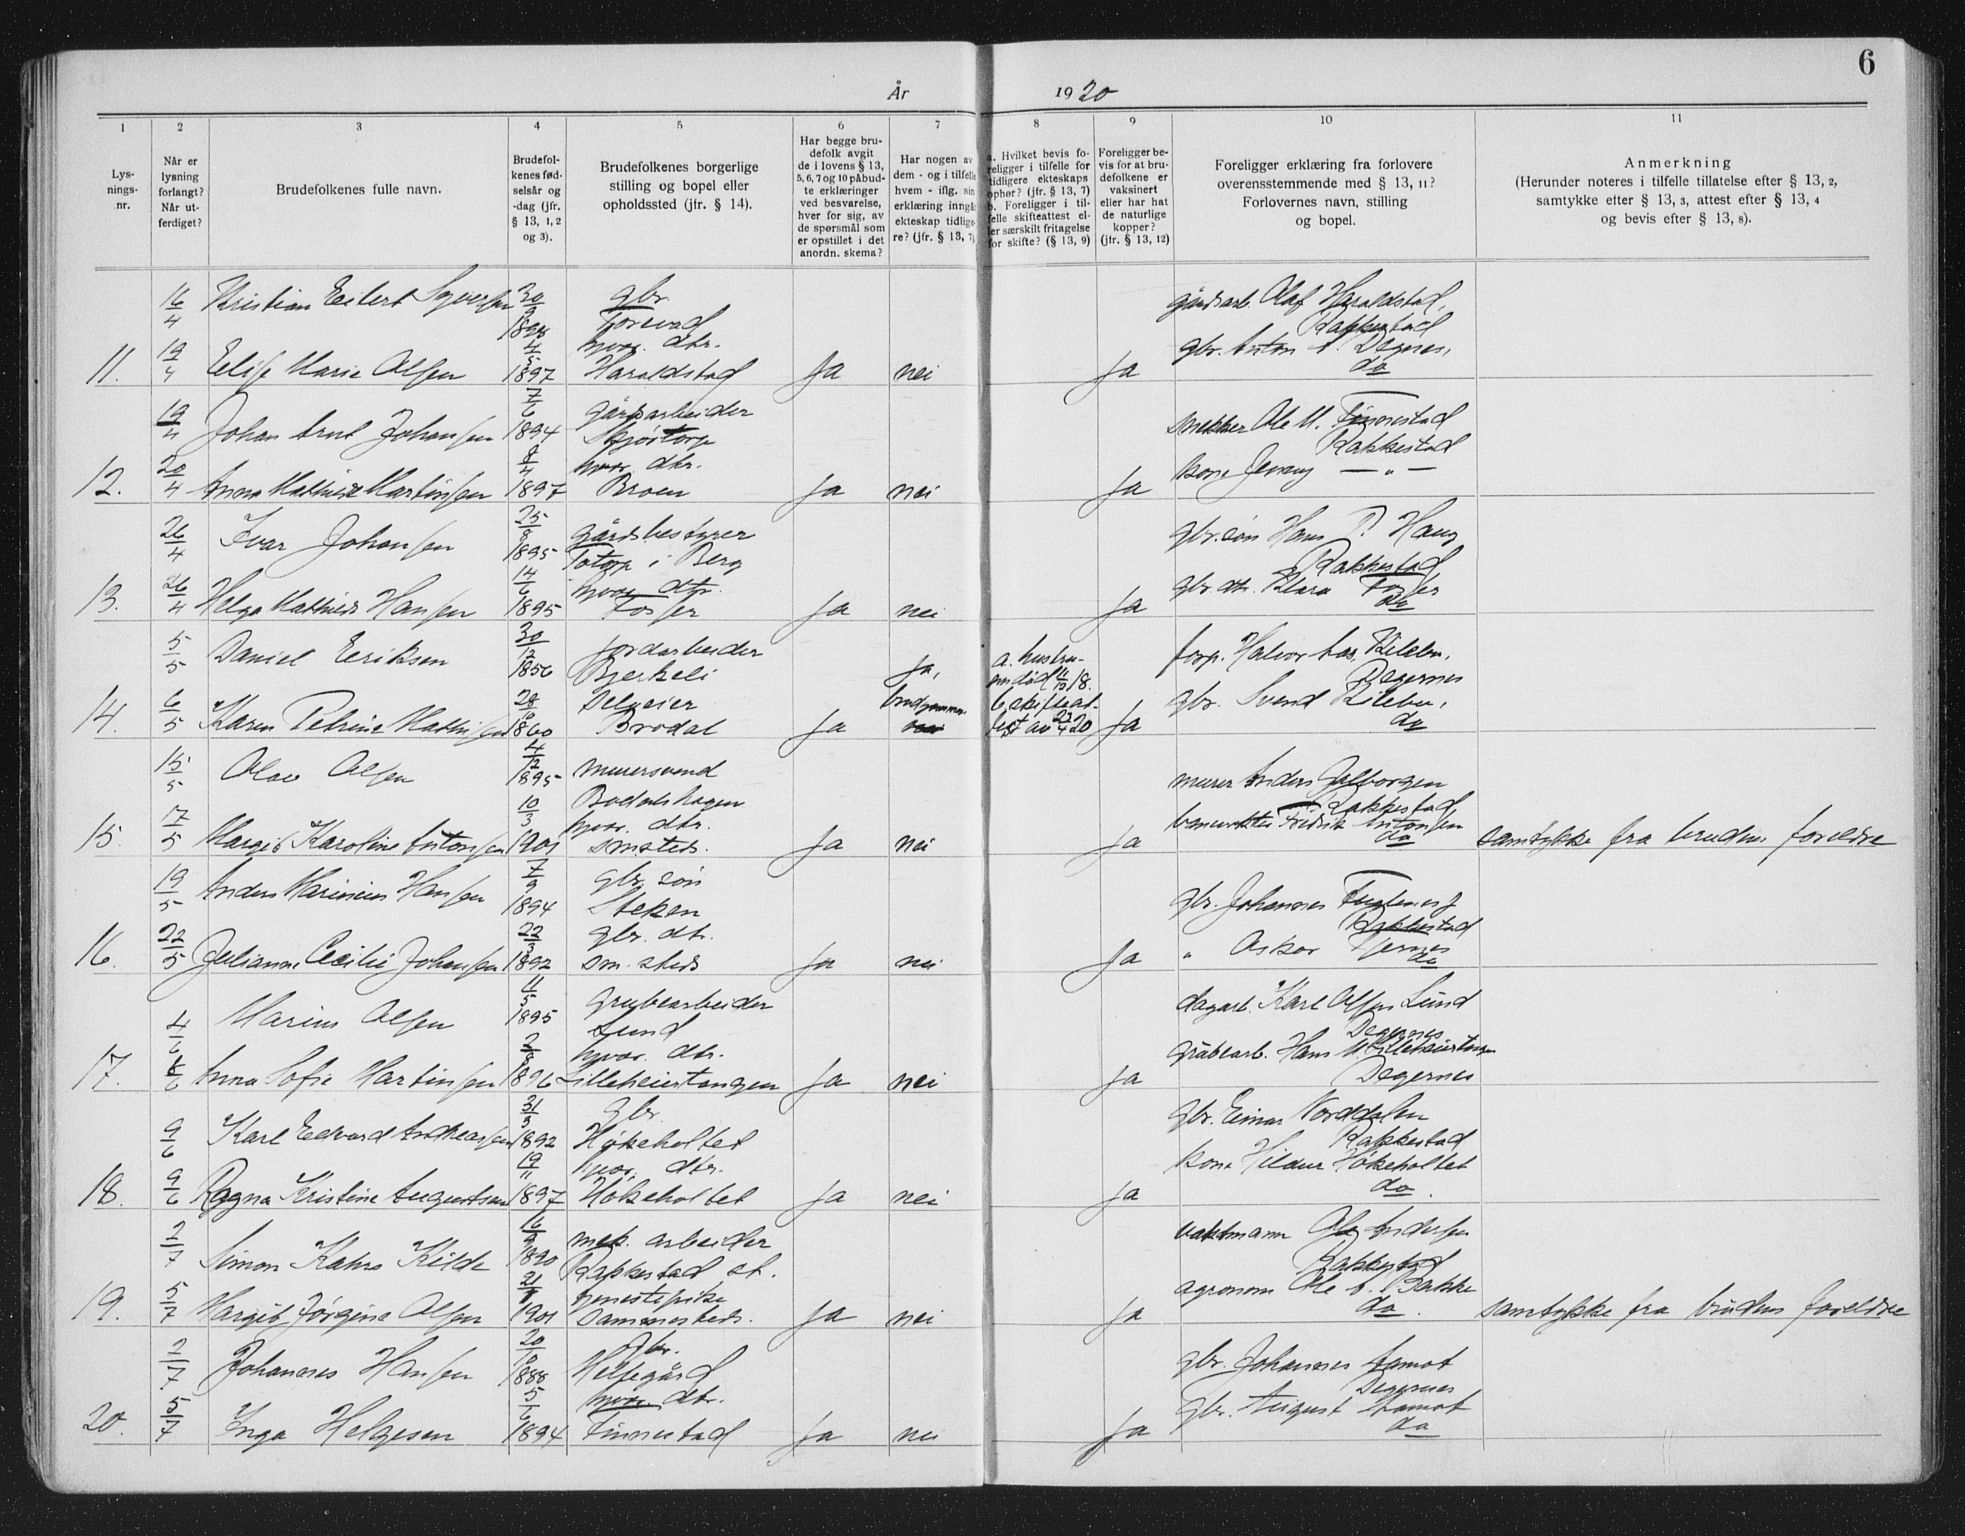 6
År 1920
1 2 3 4 5 6 7 8 9 10 11
Lys-
nings-
nr.
Når er
lysning
forlangt?
Når ut-
ferdiget?
Brudefolkenes fulle navn.
Brudefol-
kenes fød-
selsår og
-dag (jfr.
§ 13, 1, 2
og 3).
Brudefolkenes borgerlige
stilling og bopel eller
opholdssted (jfr. § 14).
Har begge bru-
defolk avgit
de i lovens § 13,
5, 6, 7 og 10 påbud-
te erklæringer
ved besvarelse,
hver for sig, av
de spørsmål som
er opstillet i det
anordn. skema?
Har nogen av
dem - og i tilfelle
hvem - iflg. sin
erklæring inngå
ekteskap tidlige-
re? (jfr. § 13, 7)
a. Hvilket bevis fo-
religger i tilfelle for
tidligere ekteskaps
ophør? (jfr. § 13, 7)
b. Foreligger i til-
felle skifteattest el-
ler særskilt fritagelse
for skifte? (§ 13, 9)
Foreligger be-
vis for at bru-
defolkene er
vaksinert
eller har hat
de naturlige
kopper?
(jfr. § 13, 12)
Foreligger erklæring fra forlovere
overensstemmende med § 13, 11?
Forlovernes navn, stilling
og bopel.
Anmerkning
(Herunder noteres i tilfelle tillatelse efter § 13, 2,
samtykke efter § 13, 3, attest efter § 13, 4
og bevis efter § 13, 8).
16/4 Kristian Eilert Syversen 30/9 1898 gbr. Torevad gårdsarb. Olaf Haraldstad, Rakkestad
11. 19/4 Elise Marie Olsen 4/5 1897 hvor. dtr. Haraldstad Ja nei Ja gbr. Anton A. Degnes, do
19/4 Johan Arnt Johansen 7/6 1894 gårdsarbeider Skjørtorp snekker Ole M. Finnestad Rakkestad
12. 20/4 Anna Mathilde Martinsen 8/4 1897 hvor. dtr. Broen Ja nei Ja kone Jenny — " —
26/4 Ivar Johansen 25/8 1895 gårdsbestyrer Totorp i Berg gbr. søn Hans P. Haug Rakkestad
13. 26/4 Helga Mathilde Hansen 14/6 1895 hvor. dtr. Fosser Ja nei Ja gbr. dtr. Klara Fosser do
5/5 Daniel Eriksen 30/12 1856 jordarbeider Bjerkeli Ja, a. hustru- forp. Halvor Kilebu, Degernes
14. 6/5 Karen Petrine Mathisen 28/10 1860 Selveier Brodal Ja brudgommen b. skifteat- test av 23/4 20 Ja gbr. Svend Kilebu, do
15/5 Olav Olsen 4/12 1895 murersvend Bodalshagen murer Anders Rakkestad
15. 17/5 Margit Karoline Antonsen 10/3 1901 hvor. dtr. smsteds. Ja nei Ja banevokter Fredrik Antonsen do samtykke fra brudens foreldre
19/5 Anders Marinius Hansen 7/9 1894 gbr. søn Steken gbr. Johannes Rakkestad
16. 22/5 Julianne Cecilie Johansen 22/3 1892 gbr. dtr. sm. steds Ja nei Ja " Oskar do
4/6 Marius Olsen 11/5 1895 grubearbeider Lund dagarb. Karl Olsen Lund Degernes
17. 8/6 Anna Sofie Martinsen 2/8 1896 hvor. dtr. Lilleheiertangen Ja nei Ja grubearb. Hans M. Lilleheiertangen Degernes
9/6 Karl Edvard Andreassen 31/3 1892 gbr. Høkeholtet gbr. Einar Norddalen Rakkestad
18. 9/6 Ragna Kristine Augustsen 19/11 1897 hvor. dtr. Høkeholtet Ja nei Ja kone Hildur Høkeholtet do.
2/7 Simon Kahrs Kilde 16/9 1890 mek. arbeider Rakkestad st. vaktmann Ole Andersen Rakkestad
19. 5/7 Margit Jørgine Olsen 21/8 1901 tjenestepike Sammesteds. Ja nei Ja agronom Ole B. Bakke do. samtykke fra brudens foreldre
2/7 Johannes Hansen 20/10 1888 Gbr. Helsegård gbr. Johannes Aamot Degernes
20. 5/7 Inga Helgesen 5/6 1894 hvor. dtr. Finnestad Ja nei Ja gbr. August Aamot do